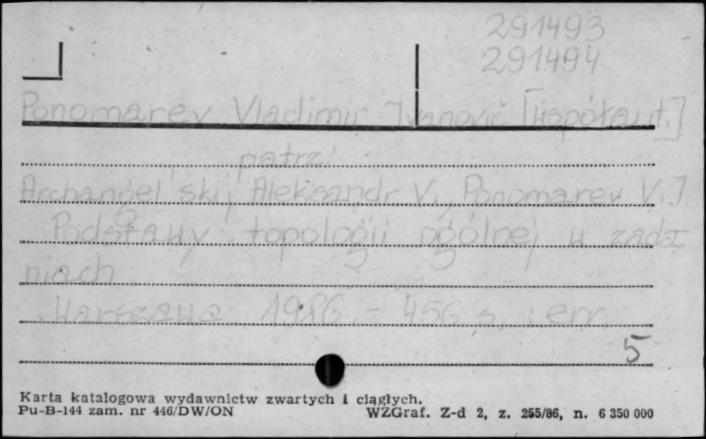 291493
291494
Ponomarev Vladimir Ivanovič [współaut.]
patrz:
Archangel'skij Aleksandr V., Ponomarev V. I
Podstawy topologii ogólnej w zada-
niach
Warszawa 1986. - 456 s. : err.
5
Karta katalogowa wydawnictw zwartych i ciągłych.
Pu-B-144 zam. nr 446/DW/ON WZGraf. Z-d 2, z. 255/86, n. 6 350 000